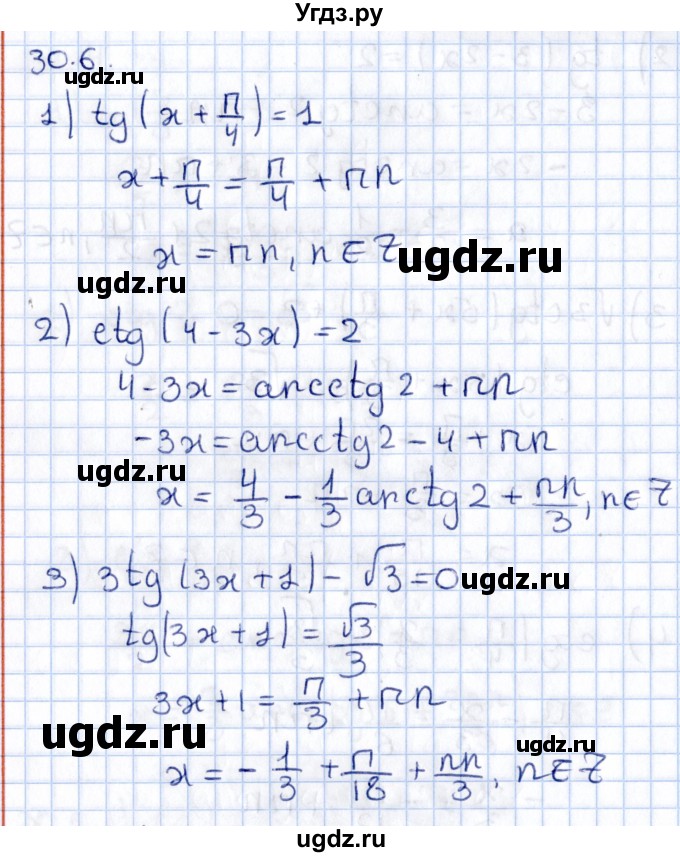 Угдз.ру
30.6.
1) tg(x + П/4) = 1
x + П/4 = П/4 + Пn
x = Пn, n∈Z
ugdz.ru
ugdz.ru
2) ctg(4 - 3x) = 2
4 - 3x = arcctg 2 + Пn
-3x = arcctg 2 - 4 + Пn
ugdz.ru
x = 4/3 - 1/3 arctg 2 + Пn/3, n∈Z
3) 3tg(3x + 1) - √3 = 0
ugdz.ru
tg(3x + 1) = √3/3
3x + 1 = П/3 + Пn
ugdz.ru
ugdz.ru
x = -1/3 + П/18 + Пn/3, n∈Z
ugdz.ru